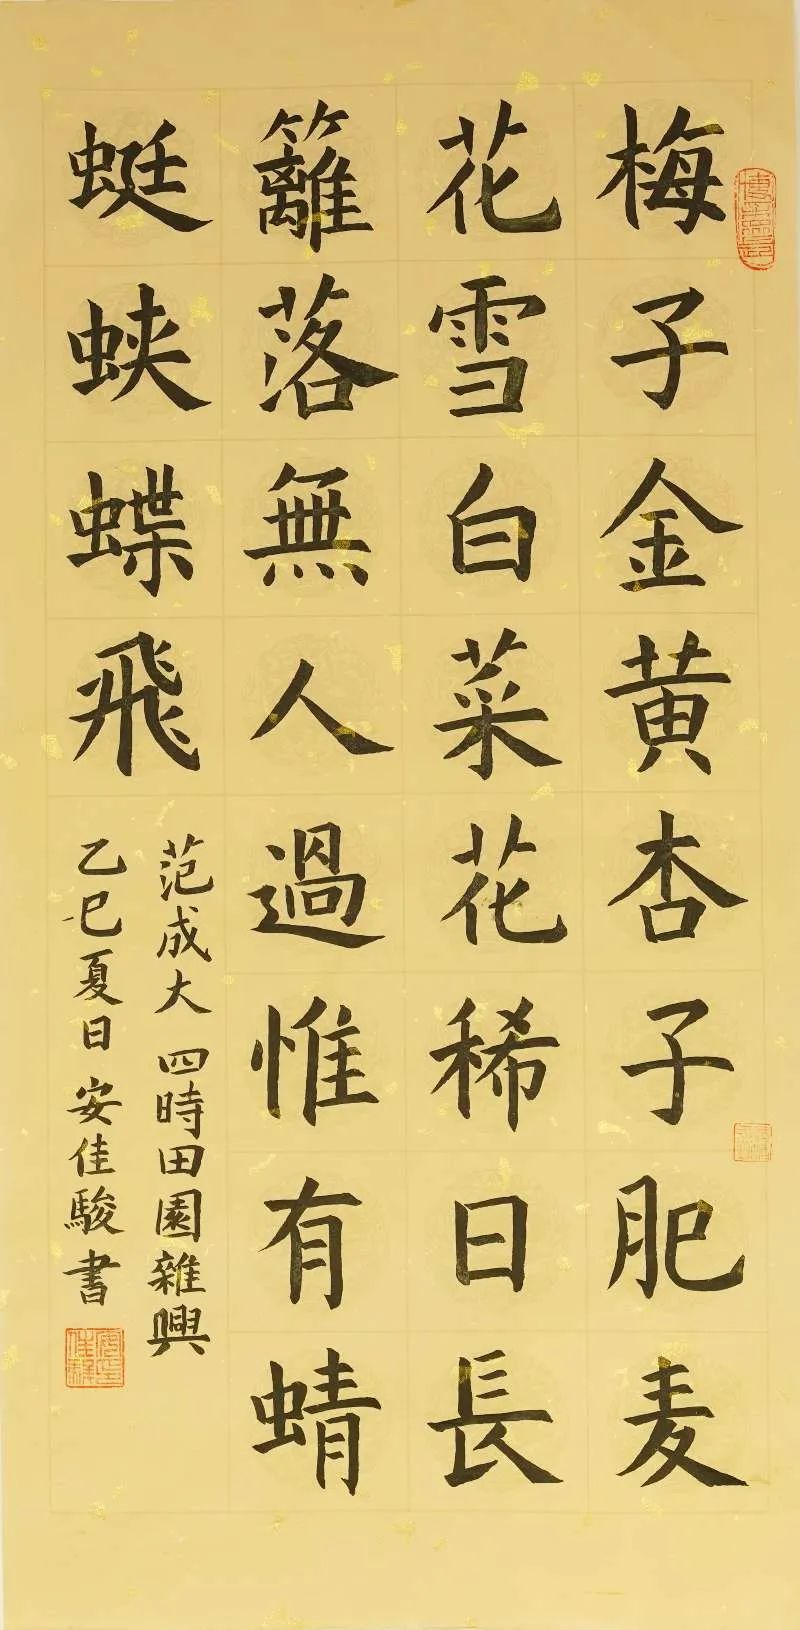 梅子金黄杏子肥麦
花雪白菜花稀日長
籬落無人過惟有蜻
蜓蛱蝶飛
范成大 四時田園雜興
乙巳夏日 安佳駿書